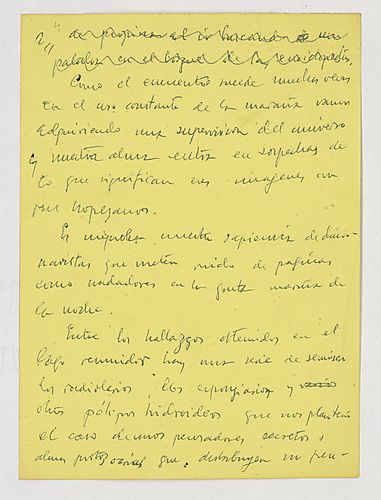 2
de páginas al ir buscando un
palabra en el bosque de las
Como el encuentro sucede muchas veces
en el uso constante de la maraña vamos
adquiriendo una supervision del universo
y nuestra alma entra en sospechas de
lo que significan esas imagenes con
que tropezamos.
Es nuestra sapiencia de diccio-
naristas que meten ruido de paginas
como nadadores en la maraña de
la noche.
Entre los hallazgos obtenidos en el
lago reunidor hay una serie de
los radiolarios, los y
otros pólipos hidroideos que nos plantean
el caso de unos pensadores secretos,
almas que distribuyen su pen-